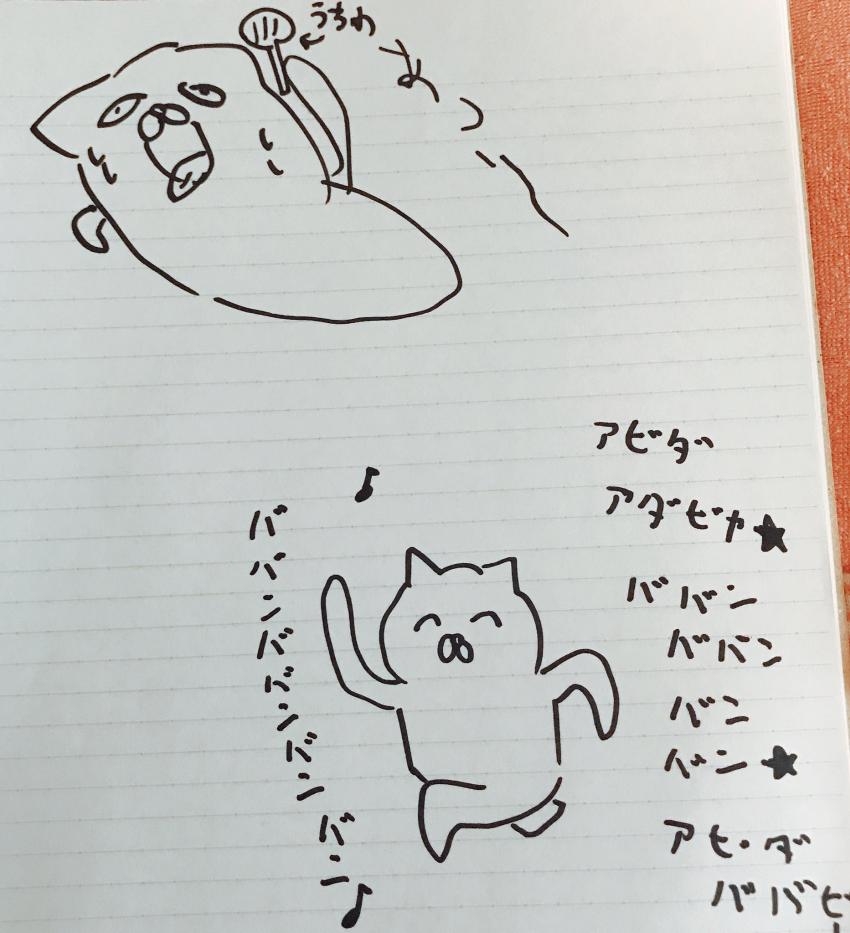 うちわ
あつ
ババンババンバンバン
アビダ
アダビヤ
ババン
ババン
バン
バン
アビダ
ババビ